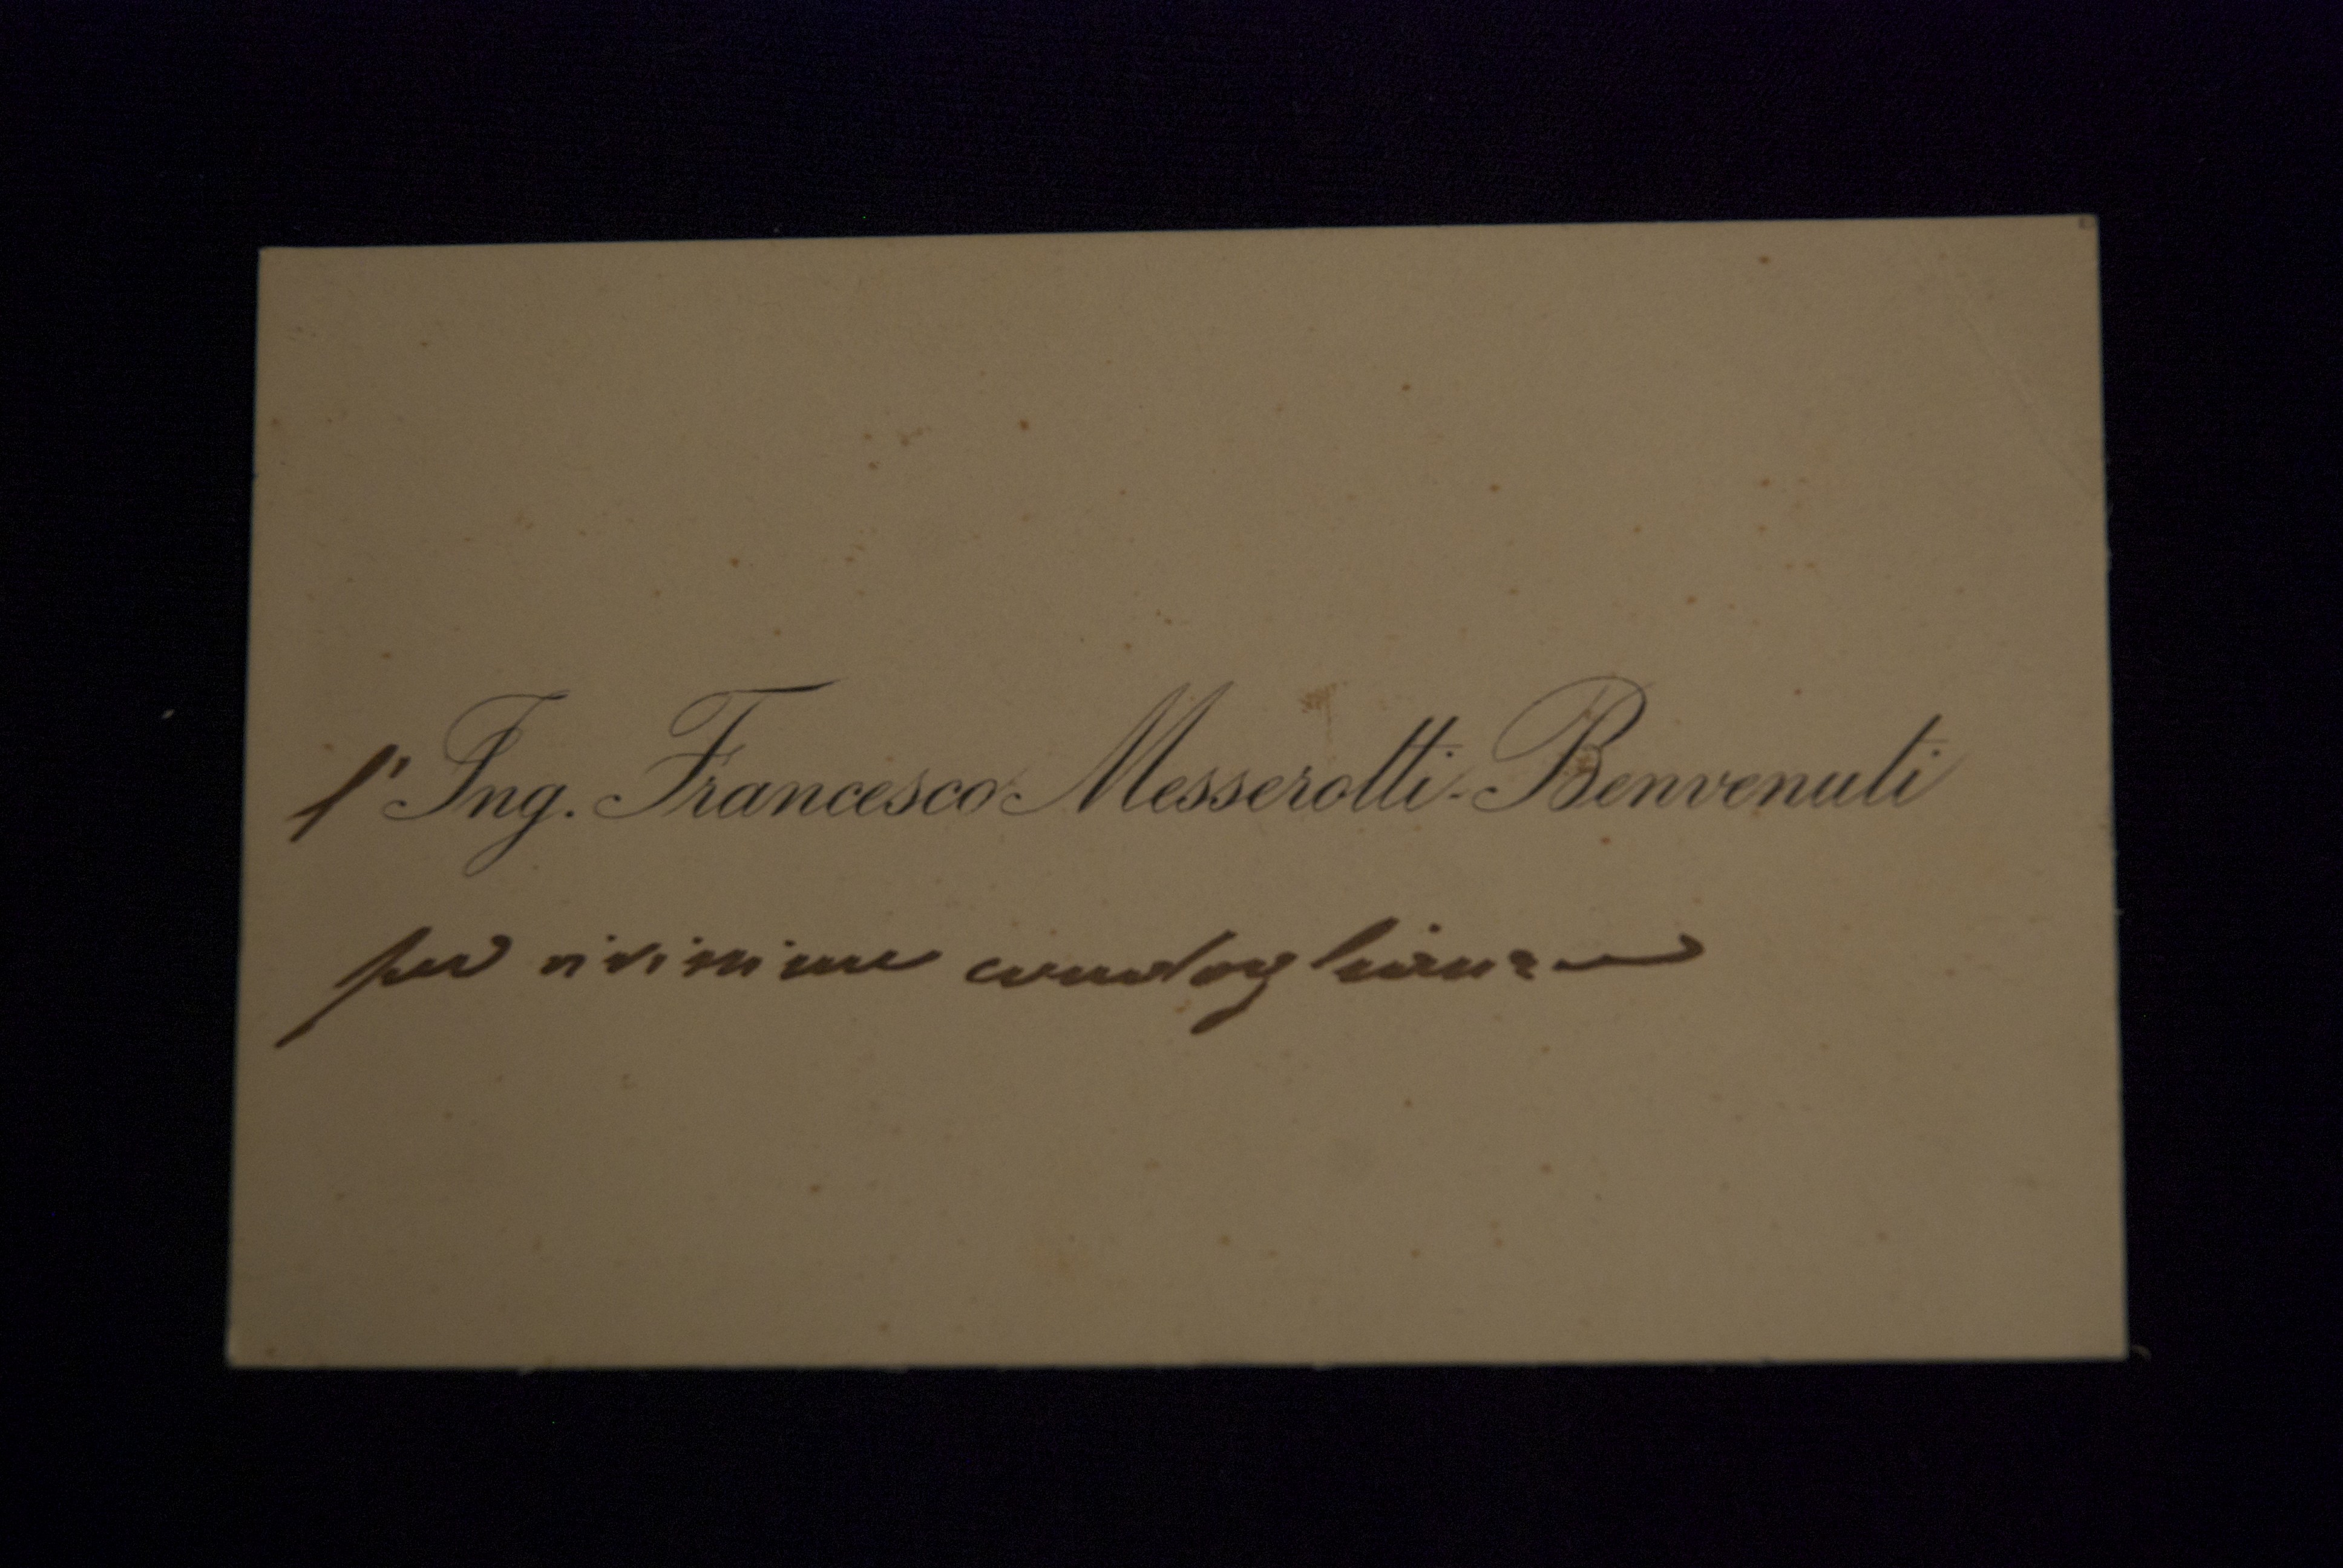 l'Ing. Francesco Messerotti-Benvenuti
per vivissime condoglianze